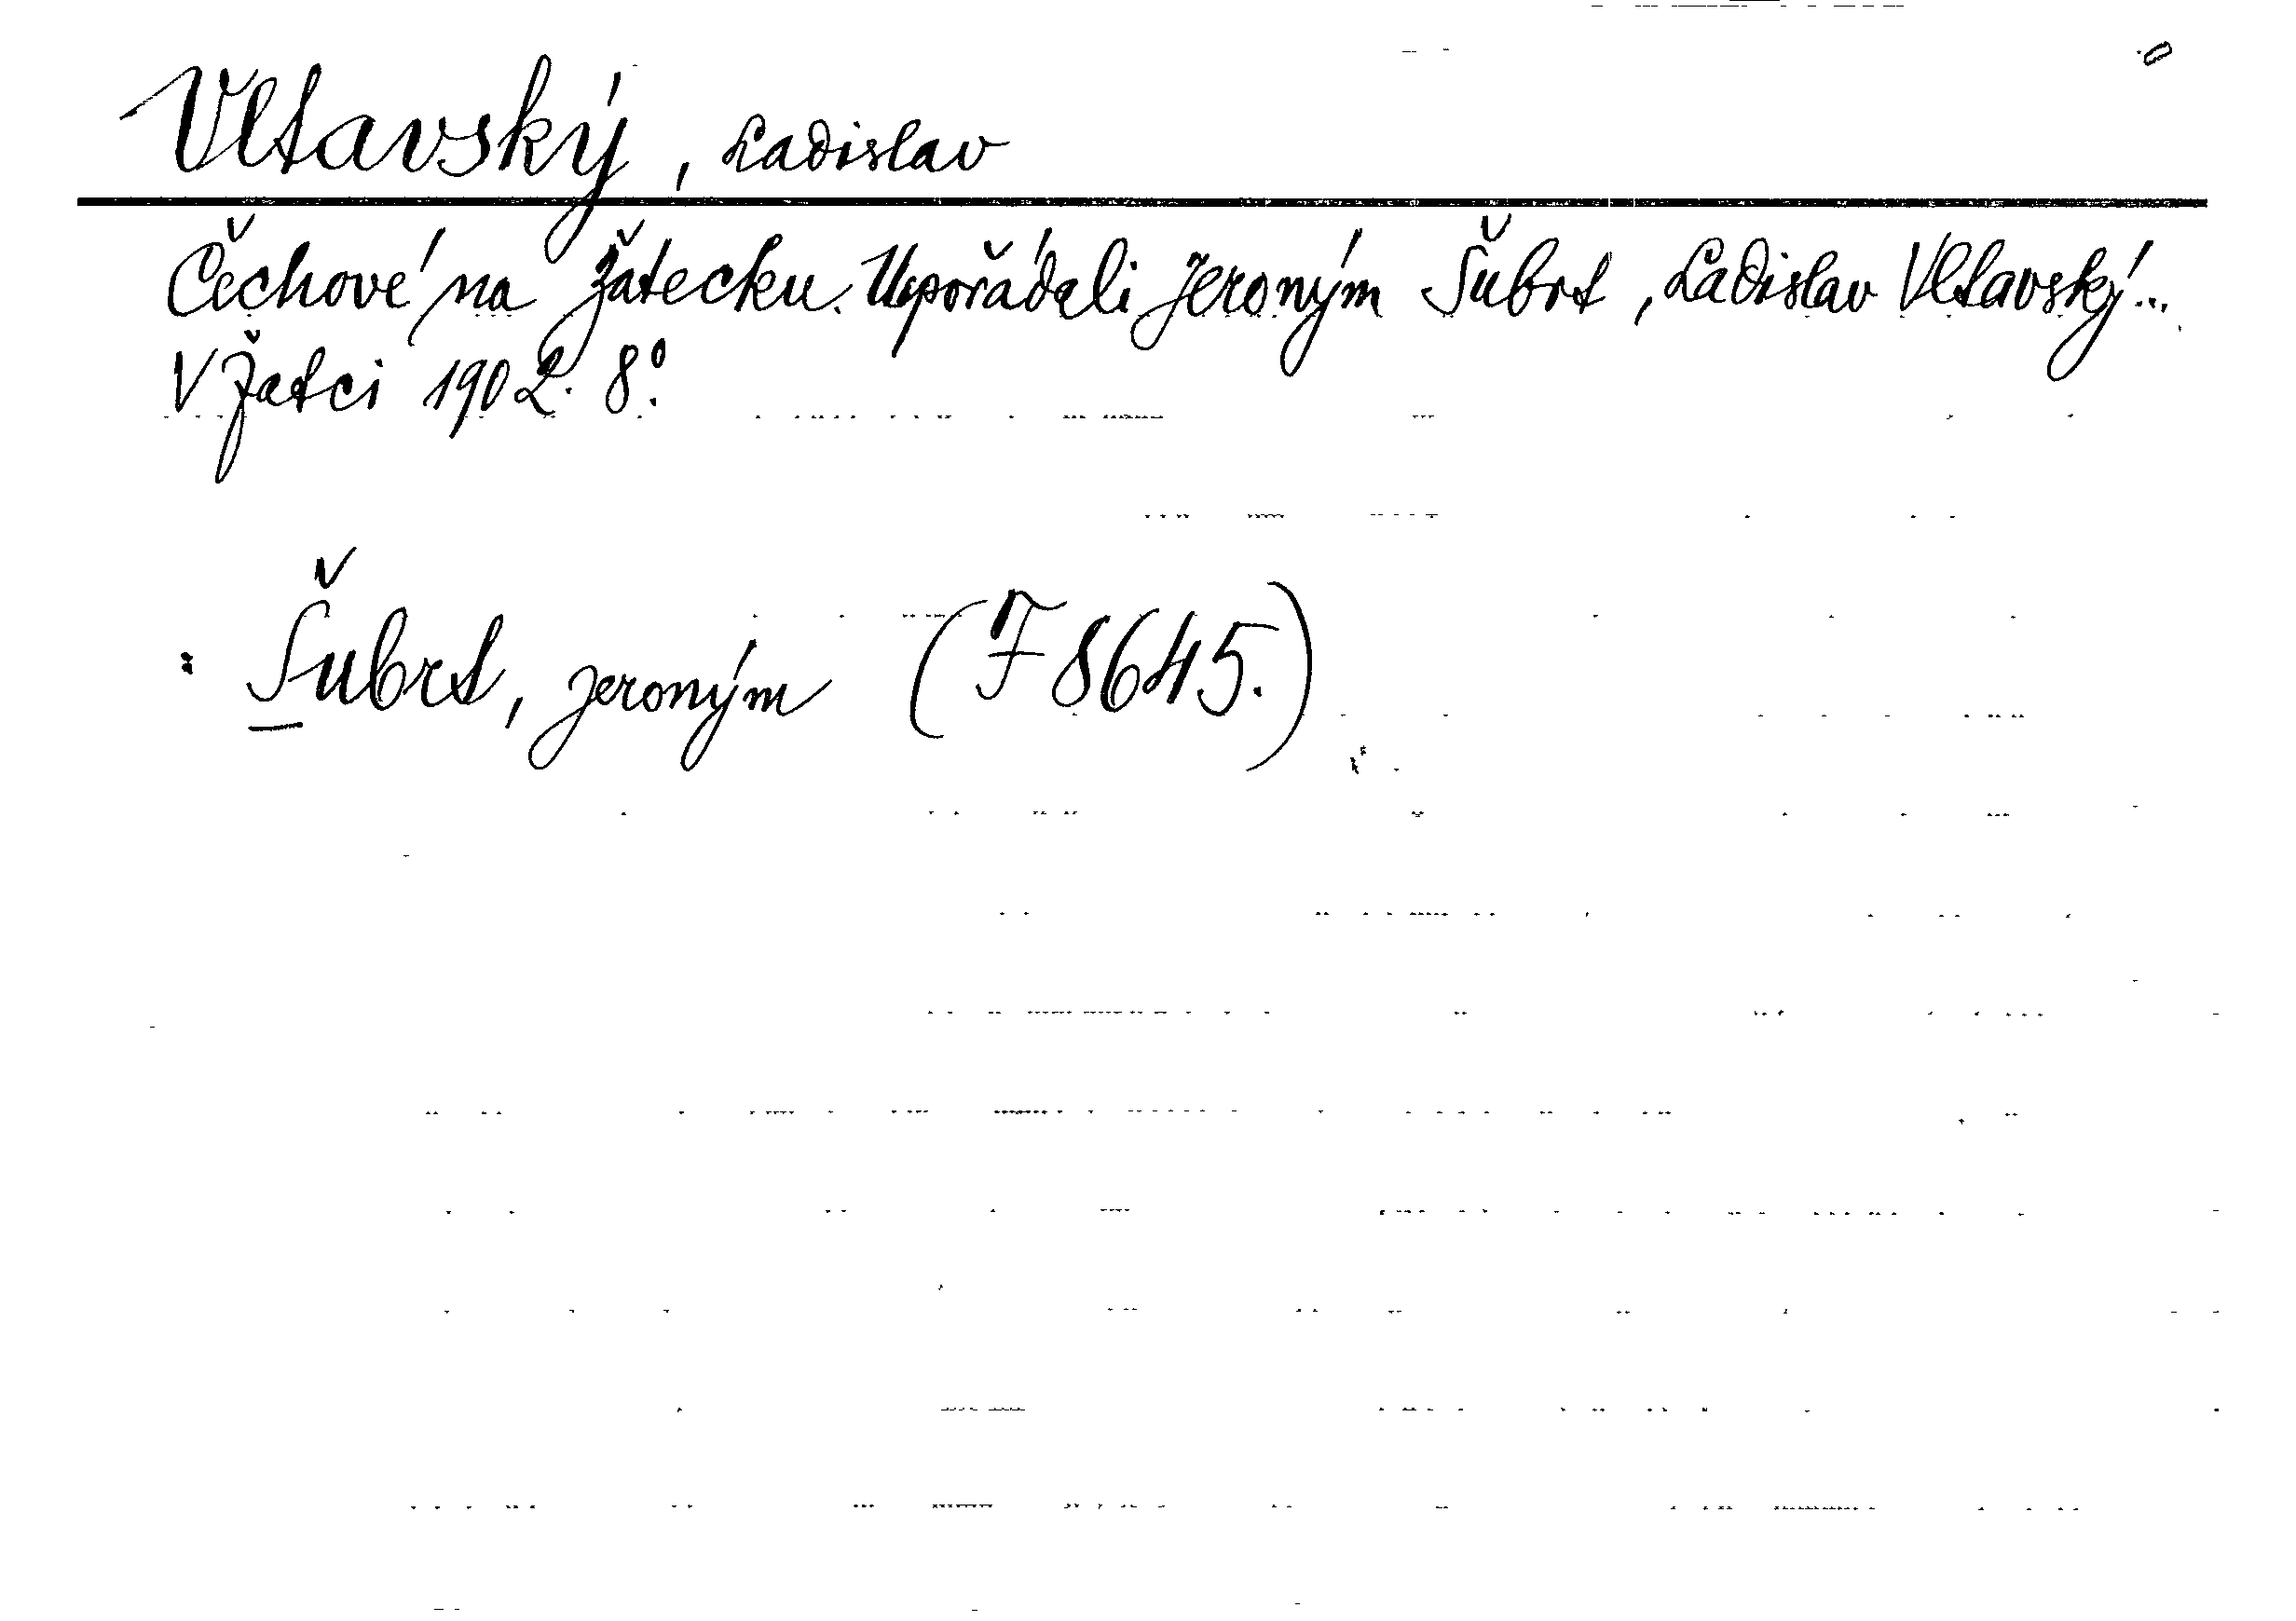 Vltavský, Ladislav
Čechové na Žatecku. Uspořádali Jeroným Šubrt, Ladislav Vltavský...
V Žatci 1902. 8°.
: Šubrt, Jeroným (F 8645.)